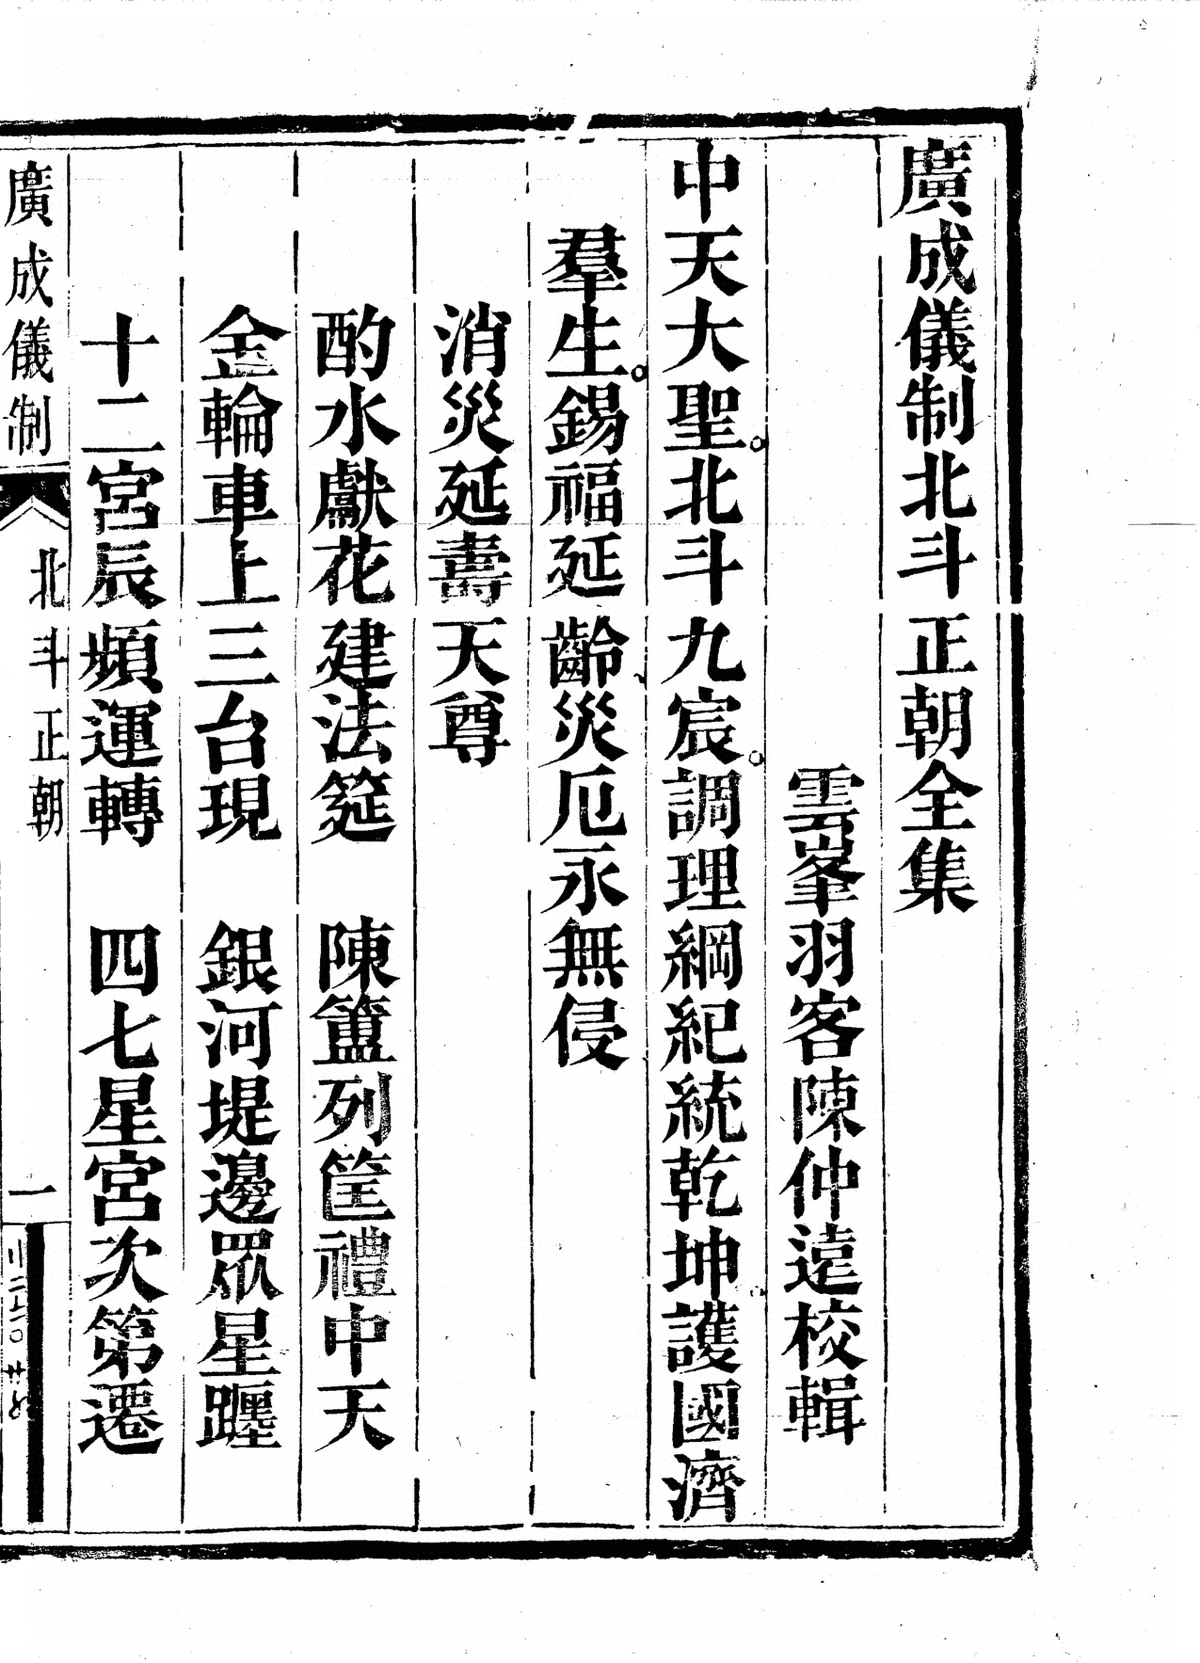 廣成儀制北斗正朝全集
雲峯羽客陳仲遠校輯
中天大聖北斗九宸調理綱紀統乾坤護國濟
羣生錫福延齡災厄永無侵
消災延壽天尊
酌水獻花建法筵　陳簠列筐禮中天
金輪車上三台現　銀河堤邊眾星躔
十二宮辰頻運轉　四七星宮次第遷
廣成儀制
北斗正朝
一